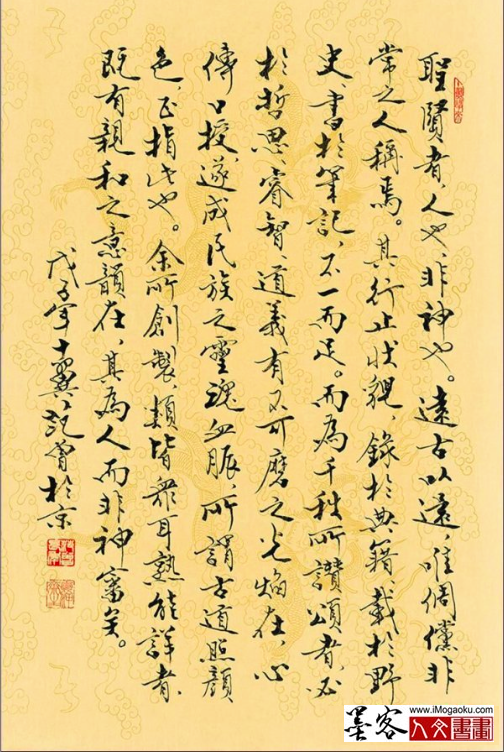 聖賢者，人也，非神也。遠古以還，唯倜儻非
常之人稱焉。其行止狀貌，錄於典籍、載於野
史、書於筆記，不一而足。而為千秋所讚頌者，必
於哲思、睿智、道義有不可磨之光焰在，心
傳口授，遂成民族之靈魂血脈，所謂古道照顏
色，正指此也。余所創製，類皆眾耳熟能詳者，
既有親和之意韻在，其為人而非神審矣。
戊子年十翼范曾於京
墨客人文書畫
www.iMogaoku.com